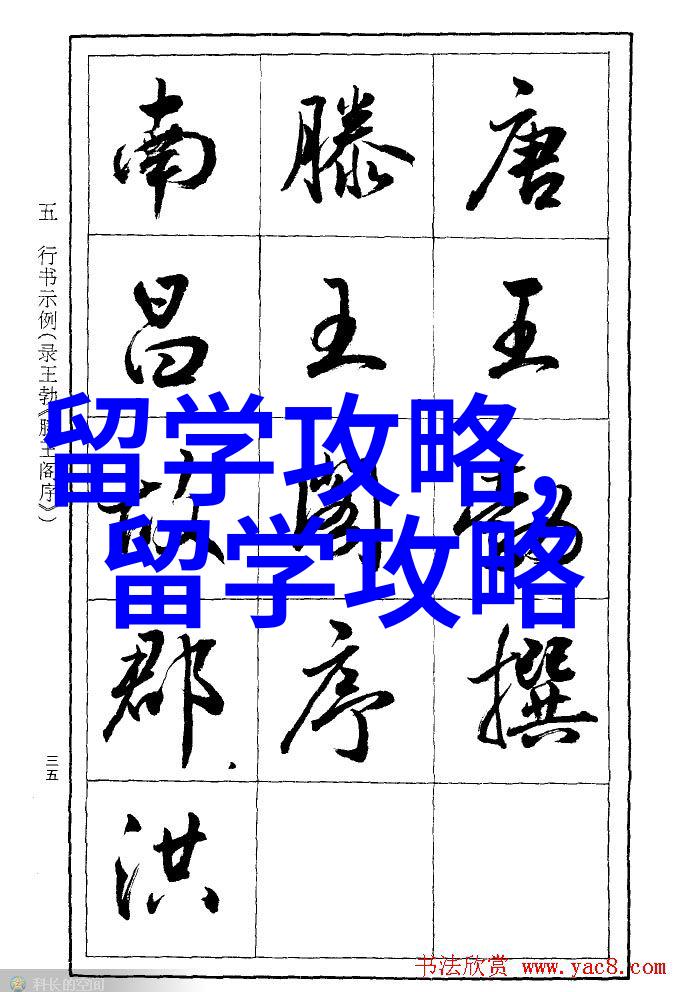 唐王勃撰
滕王阁序
南昌故郡洪
五 行书示例(录王勃《滕王阁序》)
三五
留学攻略,
留学攻略
书法欣赏 www.yac8.com
科长的空间